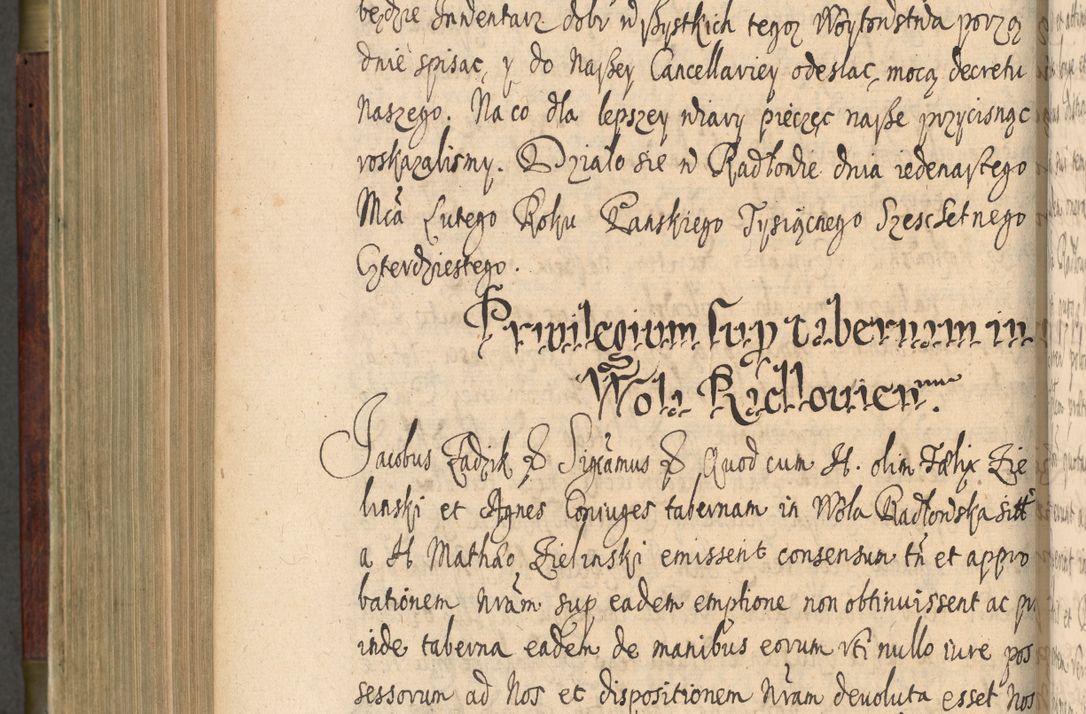 będzie Inventarz dobr wszystkich tegoz Woytowstwa porzą
dnie spisac, y do Naszey Cancellariey odeslac, mocą decretu
Naszego. Na co dla lepszey wiary pieczęc nasze przycisnąc
roskazalismy. Działo się w Radłowie dnia iedenastego
Mca Lutego Roku Panskiego Tysiącnego Szescsetnego
Czterdziestego.
Privilegium sup tabernam in
Wola Radlovien.
Jacobus Zadzik Signamus Quod cum H. olim Fælix Zie
linski et Agnes Coniuges tabernam in Wola Radłowska sitt
a H Mathæo Zielinski emissent consensum tn et appro
bationem nram sup eadem emptione non obtinuissent ac
inde taberna eadem de manibus eorum uti nullo iure pos
sessorum ad Nos et dispositionem nram devoluta esset Nos